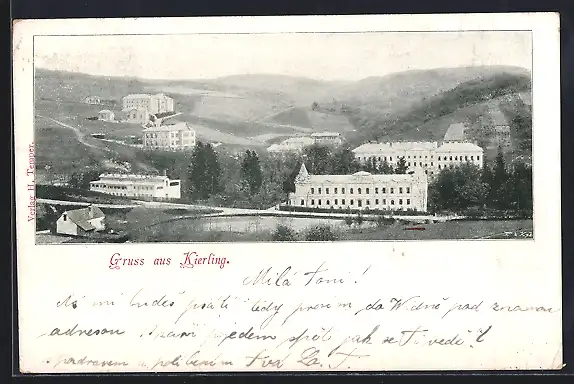 Verlag H. Temper.
Gruss aus Kierling.
Milá Toni!
mi budeš psáti tedy prosím do Vídně pod znamou
adresou předem zpět jak se Ti vede?
S pozdravem a políbením Tva